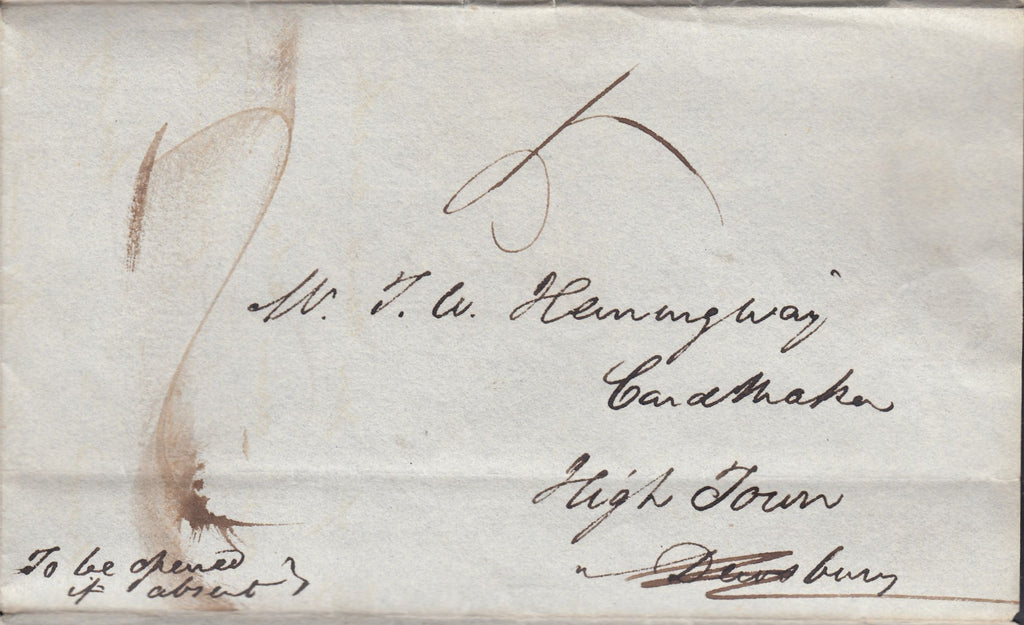 Mr. T. W. Hemingway
Card Maker
High Town
" Dewsbury
To be opened
if absent